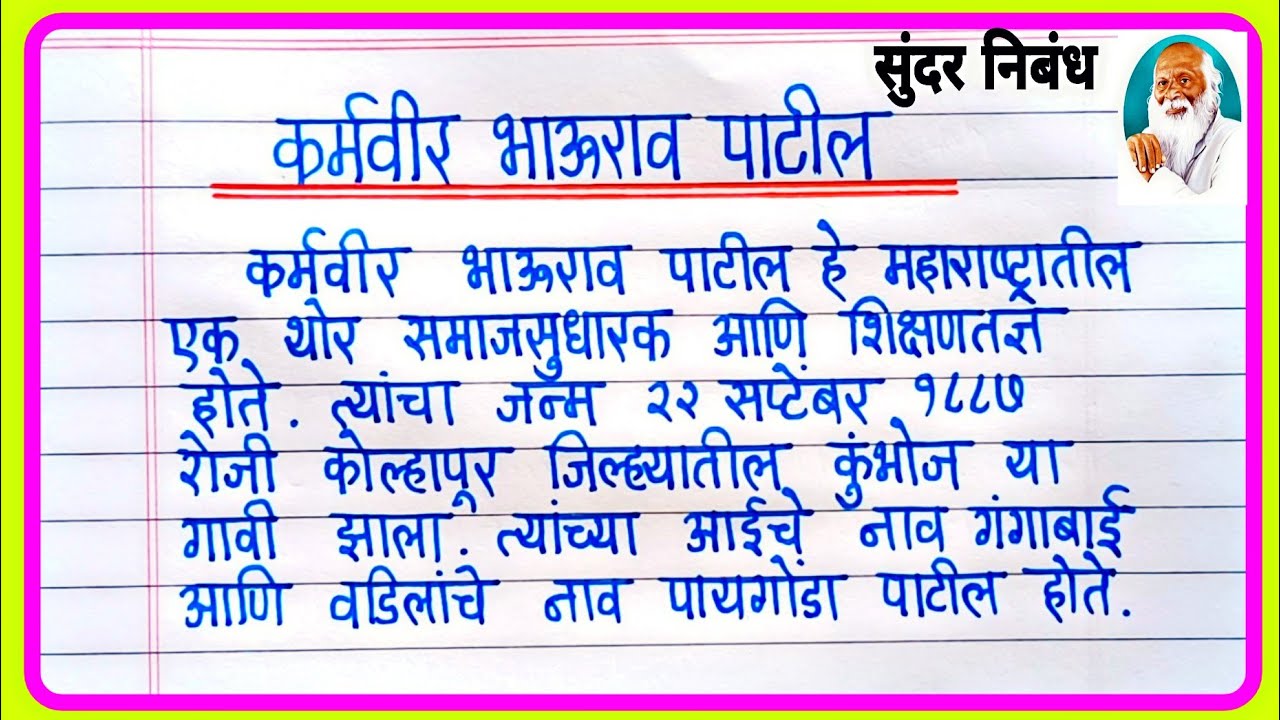 सुंदर निबंध
कर्मवीर भाऊराव पाटील
कर्मवीर भाऊराव पाटील हे महाराष्ट्रातील
एक थोर समाजसुधारक आणि शिक्षणतज्ञ
होते. त्यांचा जन्म २२ सप्टेंबर १८८७
रोजी कोल्हापूर जिल्ह्यातील कुंभोज या
गावी झाला. त्यांच्या आईचे नाव गंगाबाई
आणि वडिलांचे नाव पायगोंडा पाटील होते.